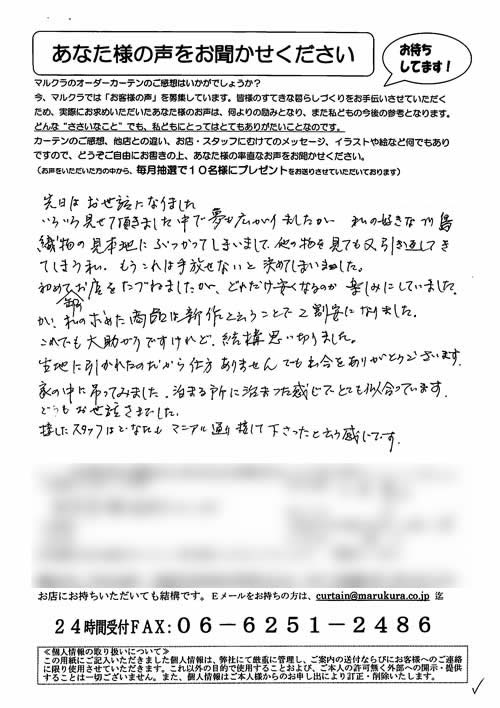 あなた様の声をお聞かせください
お待ち
してます！
マルクラのオーダーカーテンのご感想はいかがでしょうか？
今、マルクラでは「お客様の声」を募集しています。皆様のすてきな暮らしづくりをお手伝いさせていただく
ため、実際にお求めいただいたあなた様のお声は、何よりの励みとなり、また私どもの今後の参考となります。
どんな“ささいなこと”でも、私どもにとってはとてもありがたいことなのです。
カーテンのご感想、他店との違い、お店・スタッフにむけてのメッセージ、イラストや絵など何でもあり
ですので、どうぞご自由にお書きの上、あなた様の率直なお声をお聞かせください。
（お声をいただいた方の中から、毎月抽選で１０名様にプレゼントをお送りさせていただいております）
先日は お世話になりました
いろいろ見せて頂きました中で夢も広がりましたが 私の好きな川島
織物の見本地にぶつかってしまいまして、他の物を見ても又引き返してき
てしまう私、もうこれは手放せないと決めてしまいました。
初めてお店をたづねましたから、どれだけ安くなるのか楽しみにしていました。
が、私の求めた商品は新作と云うことで2割客になりました。
これでも大助かりですけれど、結構思い切りました。
生地に引かれたのだから仕方ありません でも出合をありがとうございます。
家の中に吊ってみました。泊まる所に泊まった感じで とても似合っています。
どうもお世話さまでした。
接したスタッフはどなたも マニアル通り接して下さったと云う感じです。
お店にお持ちいただいても結構です。Ｅメールをお持ちの方は、curtain@marukura.co.jp 迄
２４時間受付FAX:０６－６２５１－２４８６
≪個人情報の取り扱いについて≫
この用紙にご記入いただきました個人情報は、弊社にて厳重に管理し、ご案内の送付ならびにお客様へのご連絡
に限り使用させていただきます。これ以外の目的で使用することおよび、ご本人の許可無く外部への開示・提供
することは一切ございません。また、個人情報はご本人様からのお申し出により訂正・削除いたします。